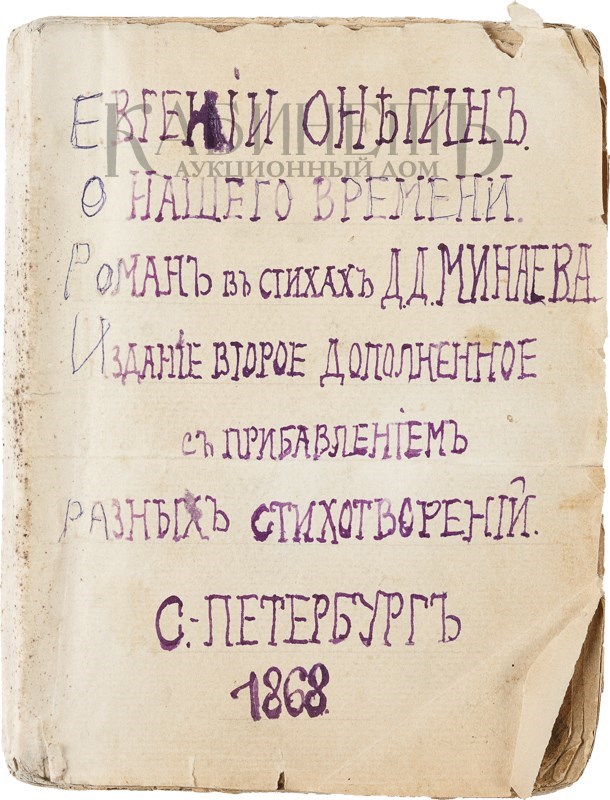 ЕВГЕНІЙ ОНѢГИНЪ.
КАБИНЕТЪ
АУКЦИОННЫЙ ДОМ
О НАШЕГО ВРЕМЕНИ.
РОМАНЪ ВЪ СТИХАХЪ Д.Д.МИНАЕВА
ИЗДАНІЕ ВТОРОЕ ДОПОЛНЕННОЕ
СЪ ПРИБАВЛЕНІЕМЪ
РАЗНЫХЪ СТИХОТВОРЕНІЙ.
С.-ПЕТЕРБУРГЪ
1868.